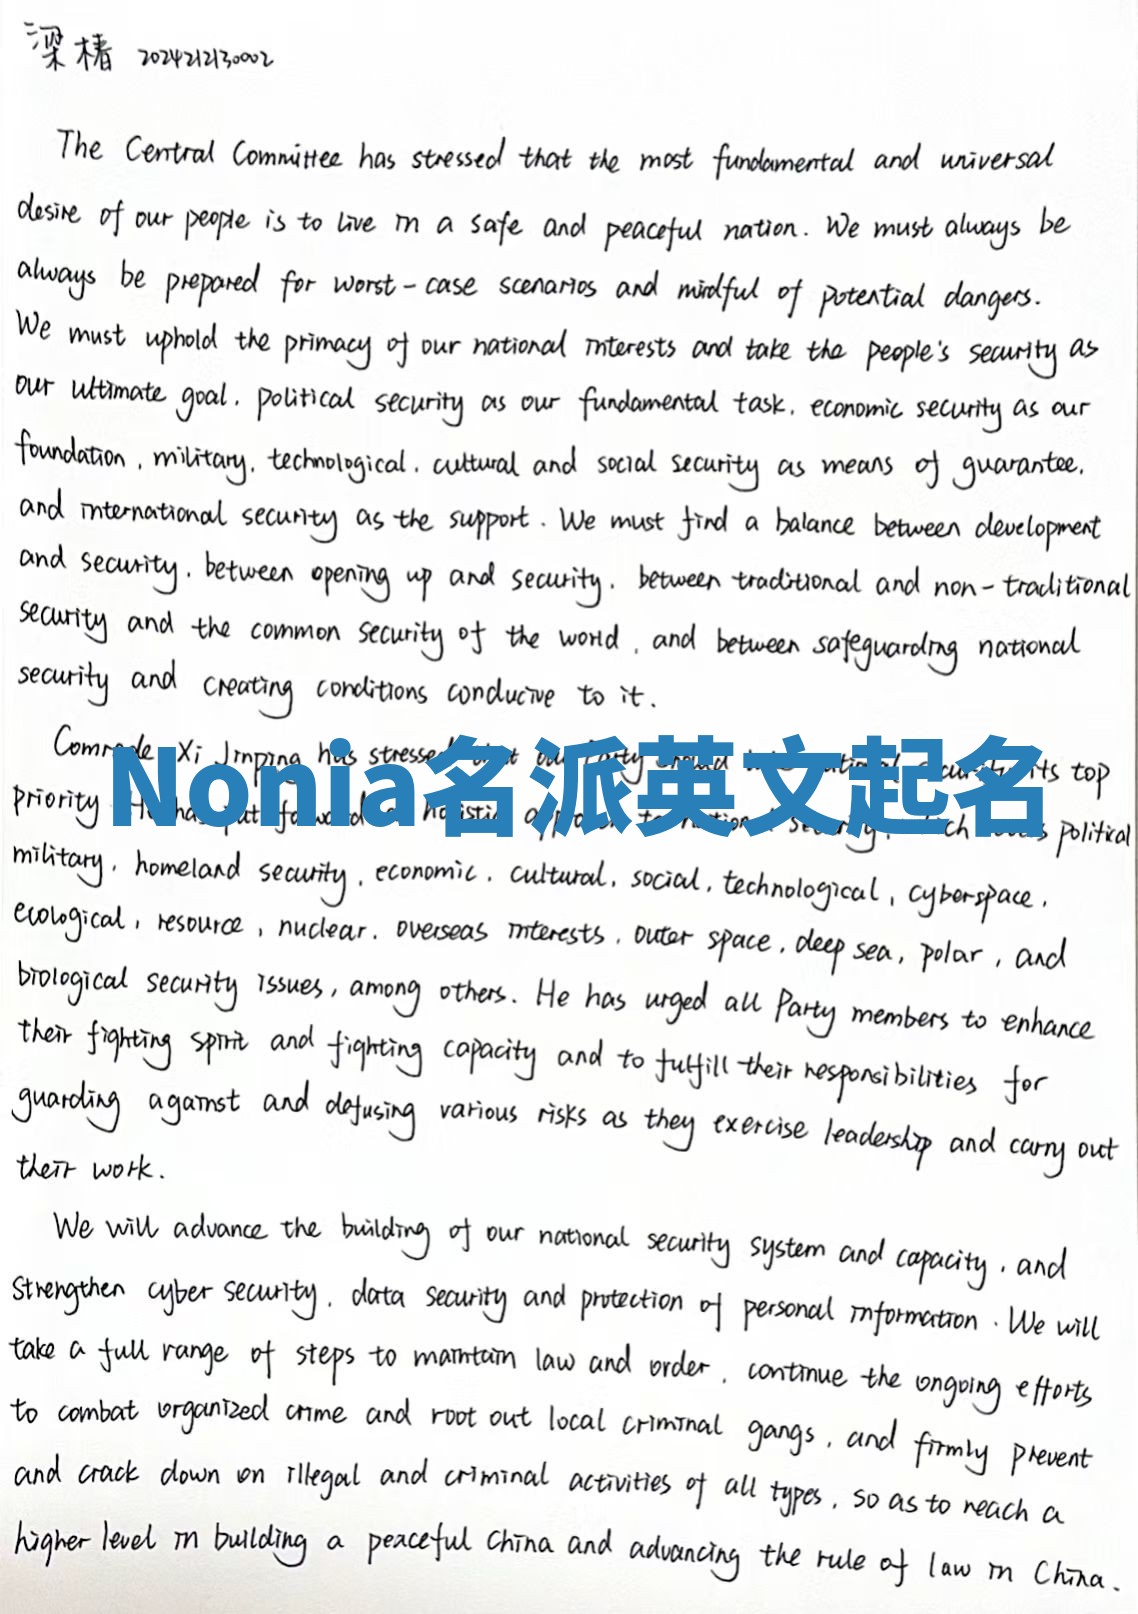 梁椿 2024212130002
The Central Committee has stressed that the most fundamental and universal
desire of our people is to live in a safe and peaceful nation. We must always be
always be prepared for worst-case scenarios and mindful of potential dangers.
We must uphold the primacy of our national interests and take the people's security as
our ultimate goal, political security as our fundamental task, economic security as our
foundation, military, technological, cultural and social security as means of guarantee,
and international security as the support. We must find a balance between development
and security, between opening up and security, between traditional and non-traditional
security and the common security of the world, and between safeguarding national
security and creating conditions conducive to it.
Comrade Xi Jinping has stressed that our Party its top
Nonia名派英文起名
priority put forward a holistic political
military, homeland security, economic, cultural, social, technological, cyberspace,
ecological, resource, nuclear, overseas interests, outer space, deep sea, polar, and
biological security issues, among others. He has urged all Party members to enhance
their fighting spirit and fighting capacity and to fulfill their responsibilities for
guarding against and defusing various risks as they exercise leadership and carry out
their work.
We will advance the building of our national security system and capacity, and
strengthen cyber security, data security and protection of personal information. We will
take a full range of steps to maintain law and order, continue the ongoing efforts
to combat organized crime and root out local criminal gangs, and firmly prevent
and crack down on illegal and criminal activities of all types, so as to reach a
higher level in building a peaceful China and advancing the rule of law in China.